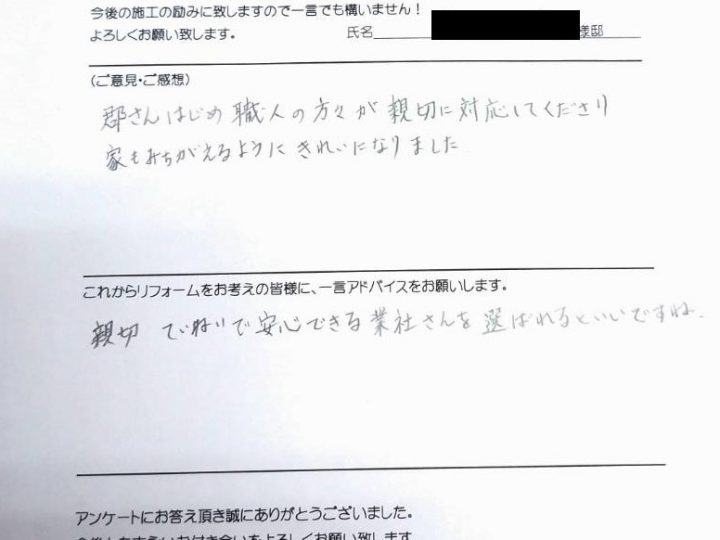 今後の施工の励みに致しますので一言でも構いません！
よろしくお願い致します。 氏名 様邸
（ご意見・ご感想）
郡さんはじめ職人の方々が親切に対応してくださり
家もみちがえるようにきれいになりました
これからリフォームをお考えの皆様に、一言アドバイスをお願いします。
親切 ていねいで安心できる業社さんを選ばれるといいですね.
アンケートにお答え頂き誠にありがとうございました。
今後とも末永いお付き合いをよろしくお願い致します